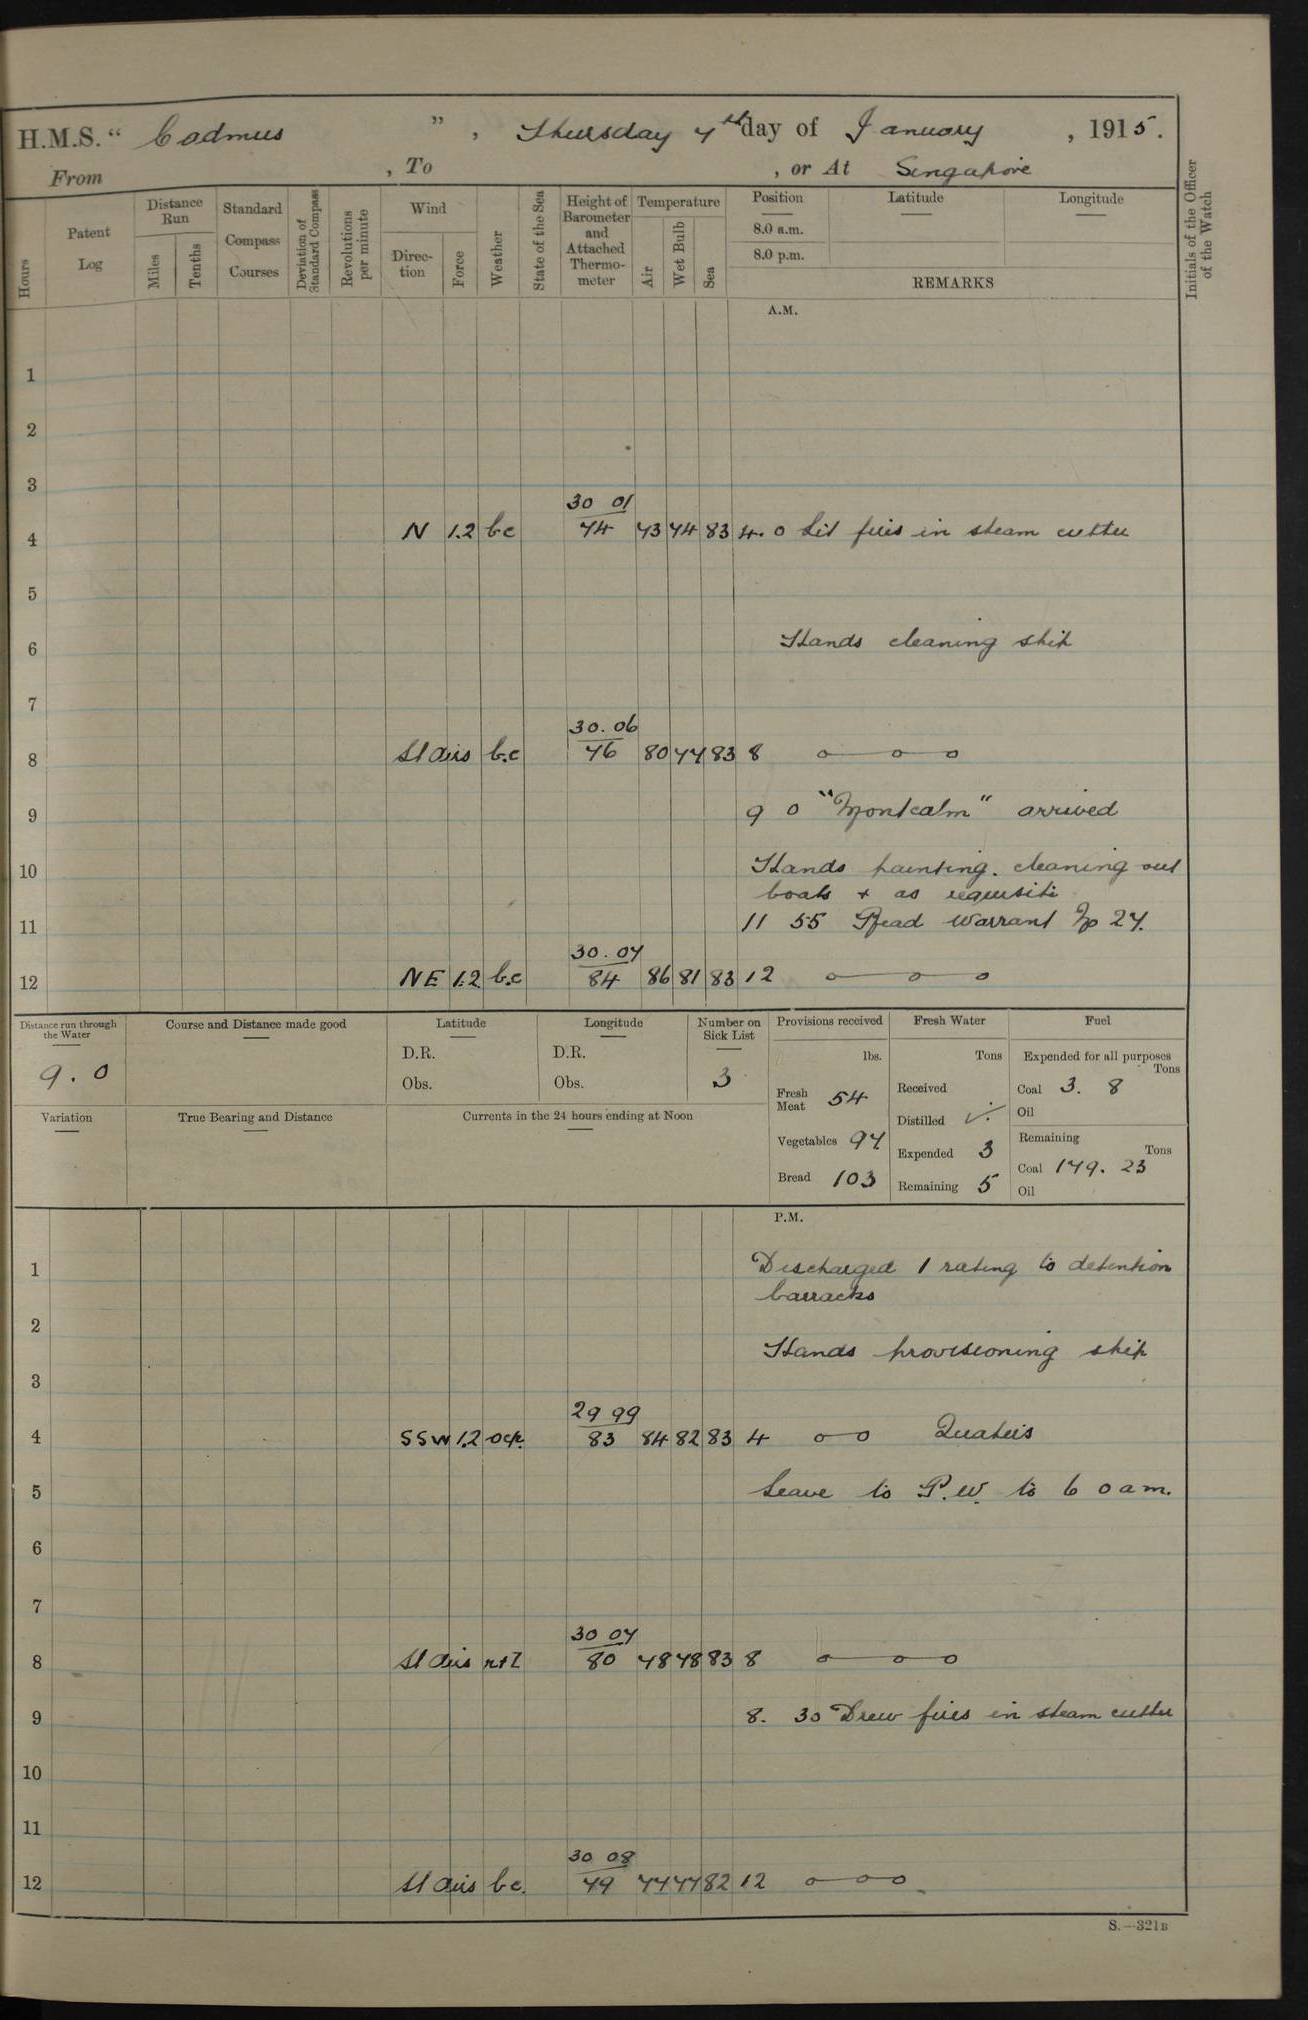 H.M.S. "Cadmus", Thursday 7th day of January, 1915.
From , To , or At Singapore
Hours
Patent Log
Distance Run
Miles
Tenths
Standard Compass Courses
Deviation of Standard Compass
Revolutions per minute
Wind
Direction
Force
Weather
State of the Sea
Height of Barometer and Attached Thermometer
Temperature
Air
Wet Bulb
Sea
Position
8.0 a.m.
8.0 p.m.
Latitude
Longitude
REMARKS
Initials of the Officer of the Watch
A.M.
1
2
3
30 01
4 N 1.2 bc 74 73 74 83 4. 0 Lit fires in steam cutter
5
6 Hands cleaning ship
7
30. 06
8 Lt airs b.c 76 80 77 83 8
9 9 0 "Montcalm" arrived
10 Hands painting. cleaning out
boats + as requisite
11 11 55 Read Warrant No 27.
30. 07
12 NE 1.2 b.c 84 86 81 83 12
Distance run through the Water
9. 0
Course and Distance made good
Latitude
D.R.
Obs.
Longitude
D.R.
Obs.
Number on Sick List
3
Provisions received
lbs.
Fresh Meat 54
Vegetables 97
Bread 103
Fresh Water
Tons
Received
Distilled
Expended 3
Remaining 5
Fuel
Expended for all purposes
Tons
Coal 3. 8
Oil
Remaining
Tons
Coal 179. 23
Oil
Variation
True Bearing and Distance
Currents in the 24 hours ending at Noon
P.M.
1 Discharged 1 rating to detention
barracks
2 Hands provisioning ship
3
29 99
4 SSW 1.2 ocp. 83 84 82 83 4 Quarters
5 Leave to P.W. to 6 0 am.
6
7
30 07
8 Lt airs rtl 80 78 78 83 8
9 8. 30 Drew fires in steam cutter
10
11
30 08
12 Lt airs bc. 79 77 77 82 12
S.—321B